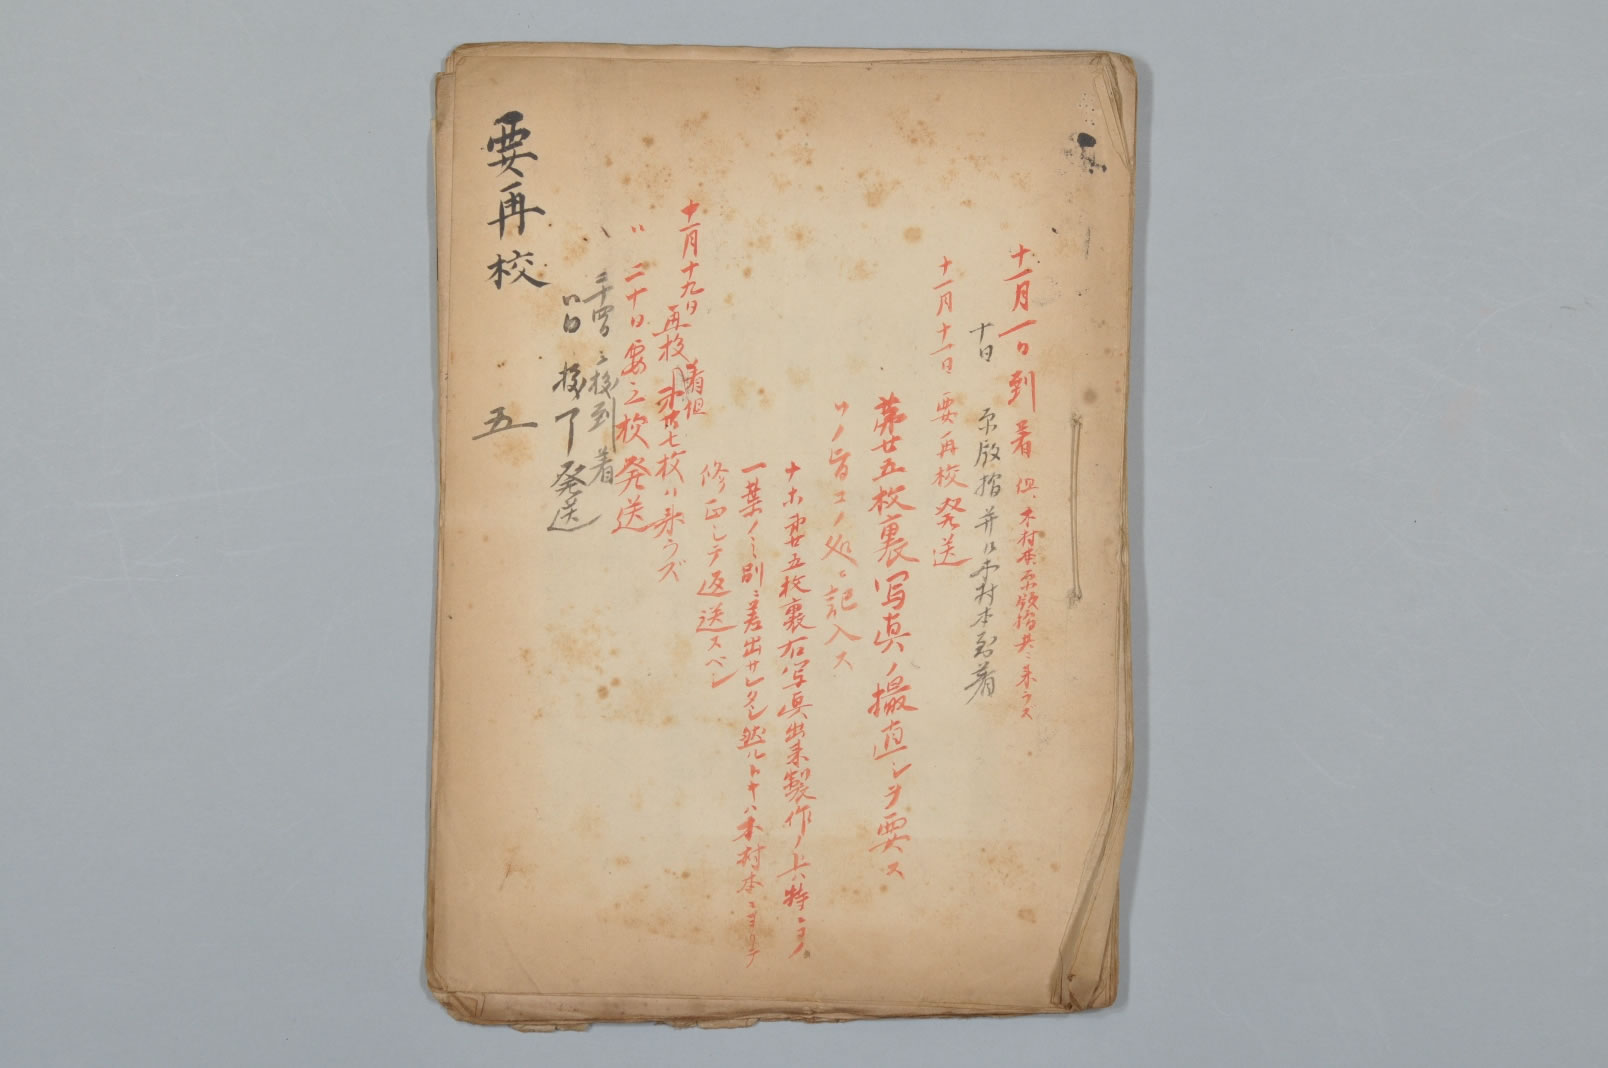 十一月一日到着 但、木村本、原版摺共ニ来ラス
十日 原版摺并ニ木村本到着
十一月十一日要再校発送
第廿五枚裏写真ノ撮直シヲ要ス
ソノ旨コノ処ニ記入ス
ナホ第廿五枚裏右写真出来製作ノ上ハ特ニコノ
一葉ノミ別ニ差出サレタシ然ルトキハ木村本ニヨリテ
修正シテ返送スベシ
十一月十九日再校着 但 第廿七枚ハ来ラズ
〃 二十日要三校発送
二十四日三校到着
〃日 校了発送
要再校 五